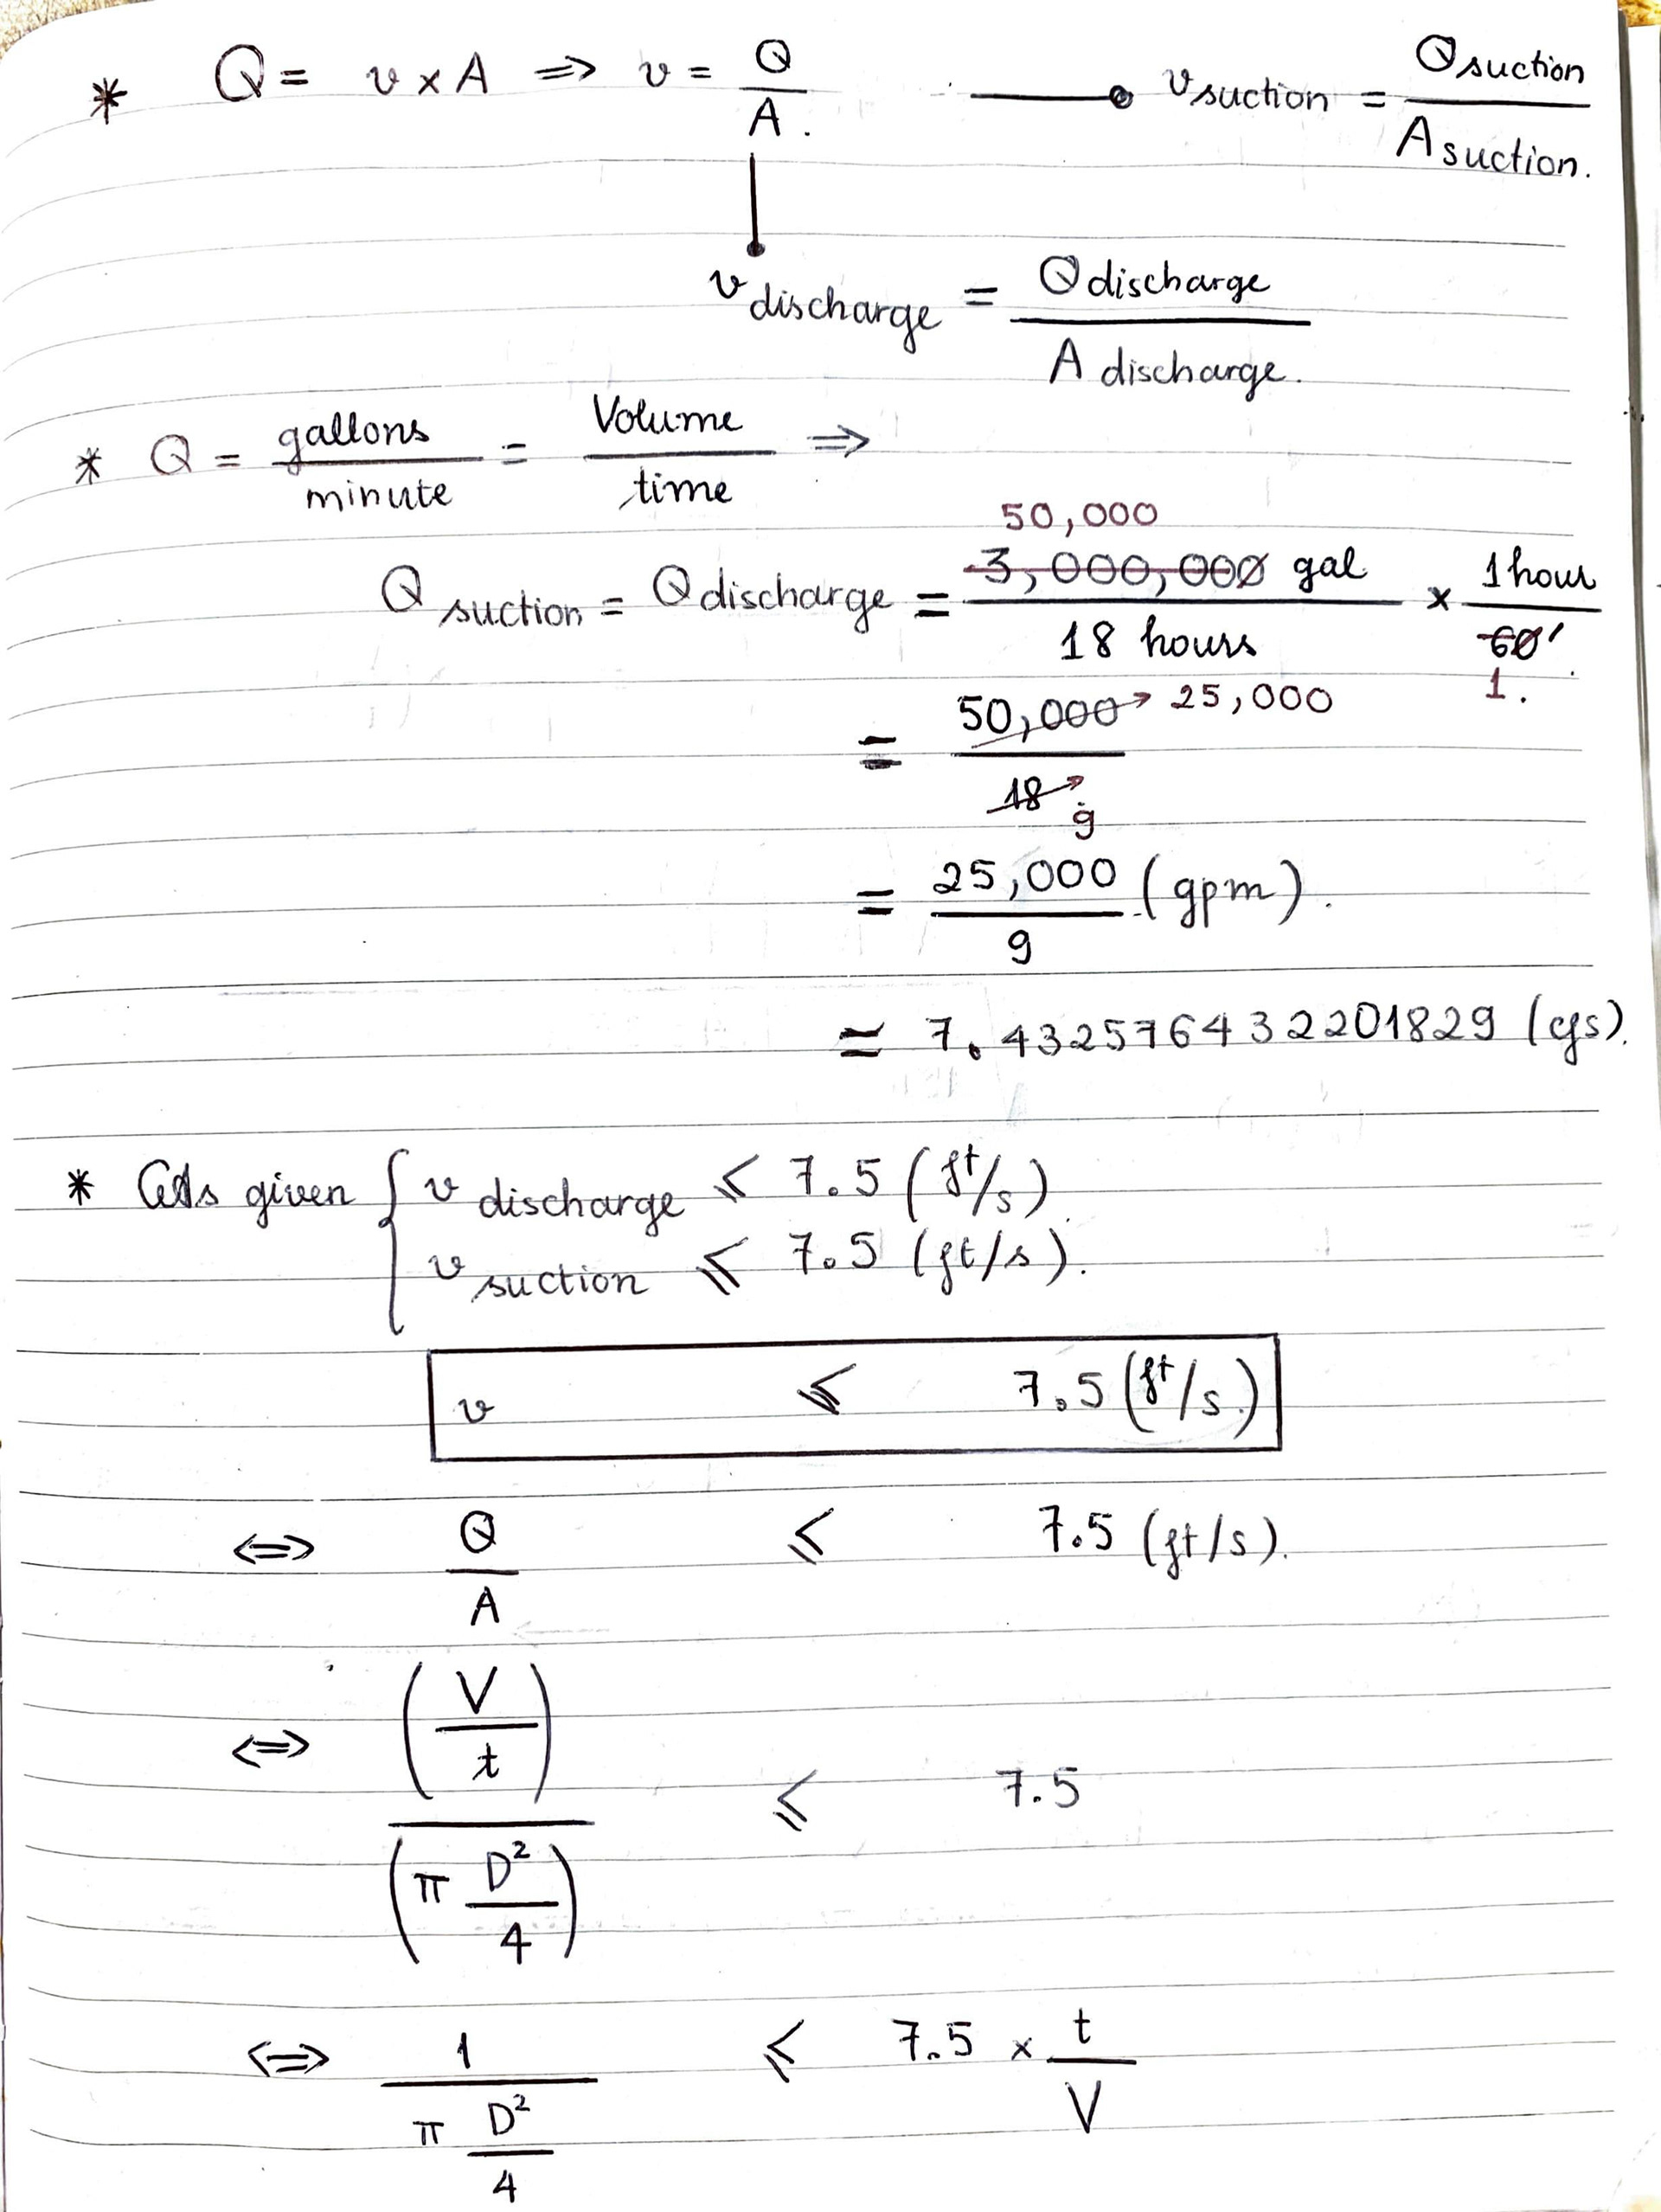 * Q = v × A ⇒ v = Q / A . —● v suction = Q suction / A suction.
v discharge = Q discharge / A discharge.
* Q = gallons / minute = Volume / time ⇒
50,000
Q suction = Q discharge = 3,000,000 gal / 18 hours × 1 hour / 60'
1.
= 50,000 → 25,000 / 18 → 9
= 25,000 / 9 (gpm).
≃ 7.432576432201829 (cfs).
* As given { v discharge ⩽ 7.5 (ft/s)
v suction ⩽ 7.5 (ft/s).
v ⩽ 7.5 (ft/s.)
⇔ Q / A ⩽ 7.5 (ft/s).
⇔ (V / t) / (π D² / 4) ⩽ 7.5
⇔ 1 / π D² / 4 ⩽ 7.5 × t / V